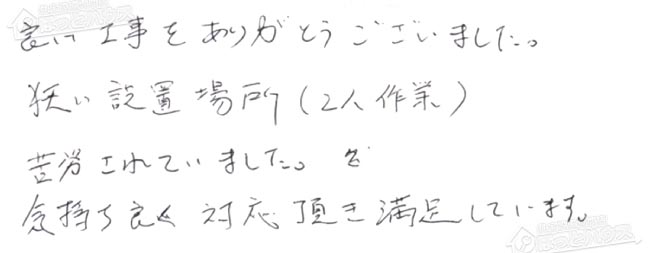 良い工事をありがとうございました。
狭い設置場所(2人作業)
苦労されていました。を
気持ち良く対応頂き満足しています。